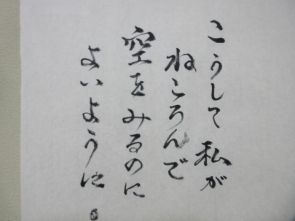 こうして私が
ねころんで
空をみるのに
よいように